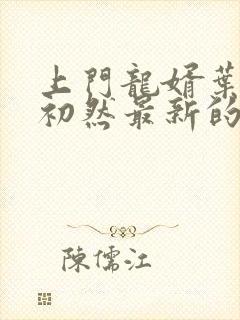 上門龍婿葉
初然最新的
陳儒江